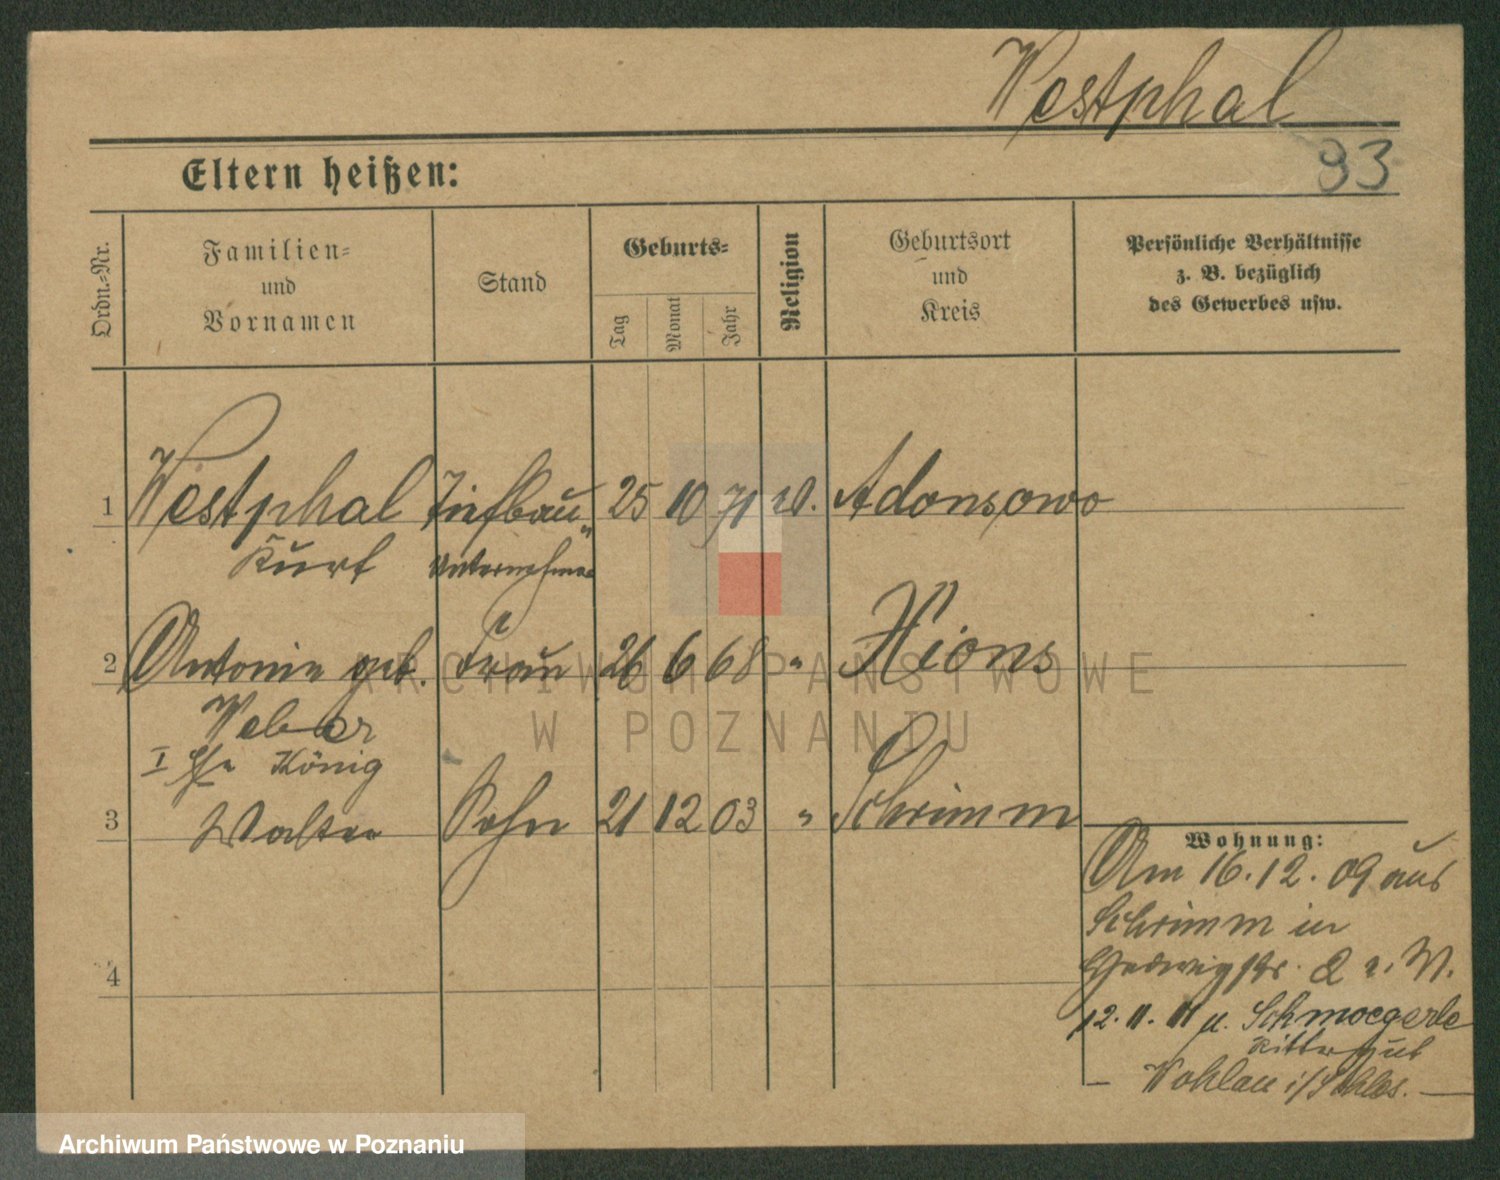 Westphal
93
Eltern heißen:
Ordn.-Nr.
Familien-
und
Vornamen
Stand
Geburts-
Tag
Monat
Jahr
Religion
Geburtsort
und
Kreis
Persönliche Verhältnisse
z. B. bezüglich
des Gewerbes usw.
1 Westphal Tiefbau- 25 10 71 ev. Adonsowo
Kurt Unternehmer
2 Antonie geb. Frau 26 6 68 " Xions
Weber
I Ehe König
3 Walter Sohn 21 12 03 " Schrimm
4
Wohnung:
Am 16.12.09 aus
Schrimm in
Hedwigstr. 2 z. W.
12.11.11 n. Schmoegerle
Rittergut
Wohlau i/Schles.
ARCHIWUM PAŃSTWOWE
W POZNANIU
Archiwum Państwowe w Poznaniu